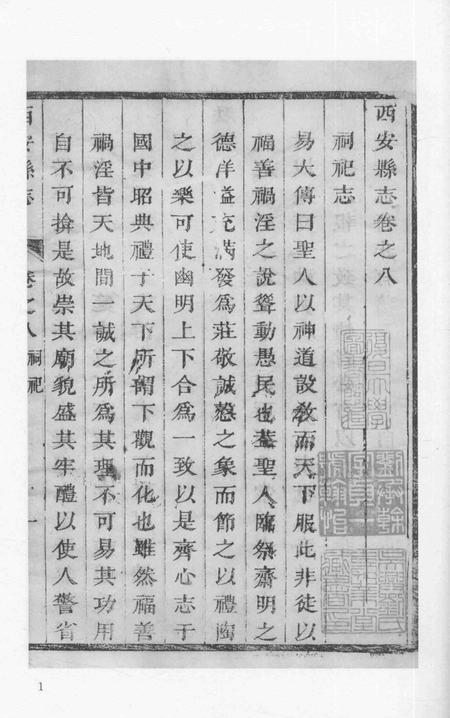 西安縣志卷之八
祠祀志
易大傳曰聖人以神道設教而天下服此非徒以
福善禍淫之說聳動愚民也蓋聖人臨祭齋明之
德洋溢充滿發為莊敬誠慤之象而節之以禮陶
之以樂可使幽明上下合為一致以是齊心志于
國中昭典禮于天下所謂下觀而化也雖然福善
禍淫皆天地間一誠之所為其理不可易其功用
自不可揜是故崇其廟貌盛其牢醴以使人警省
西安縣志 卷之八 祠祀 一
1